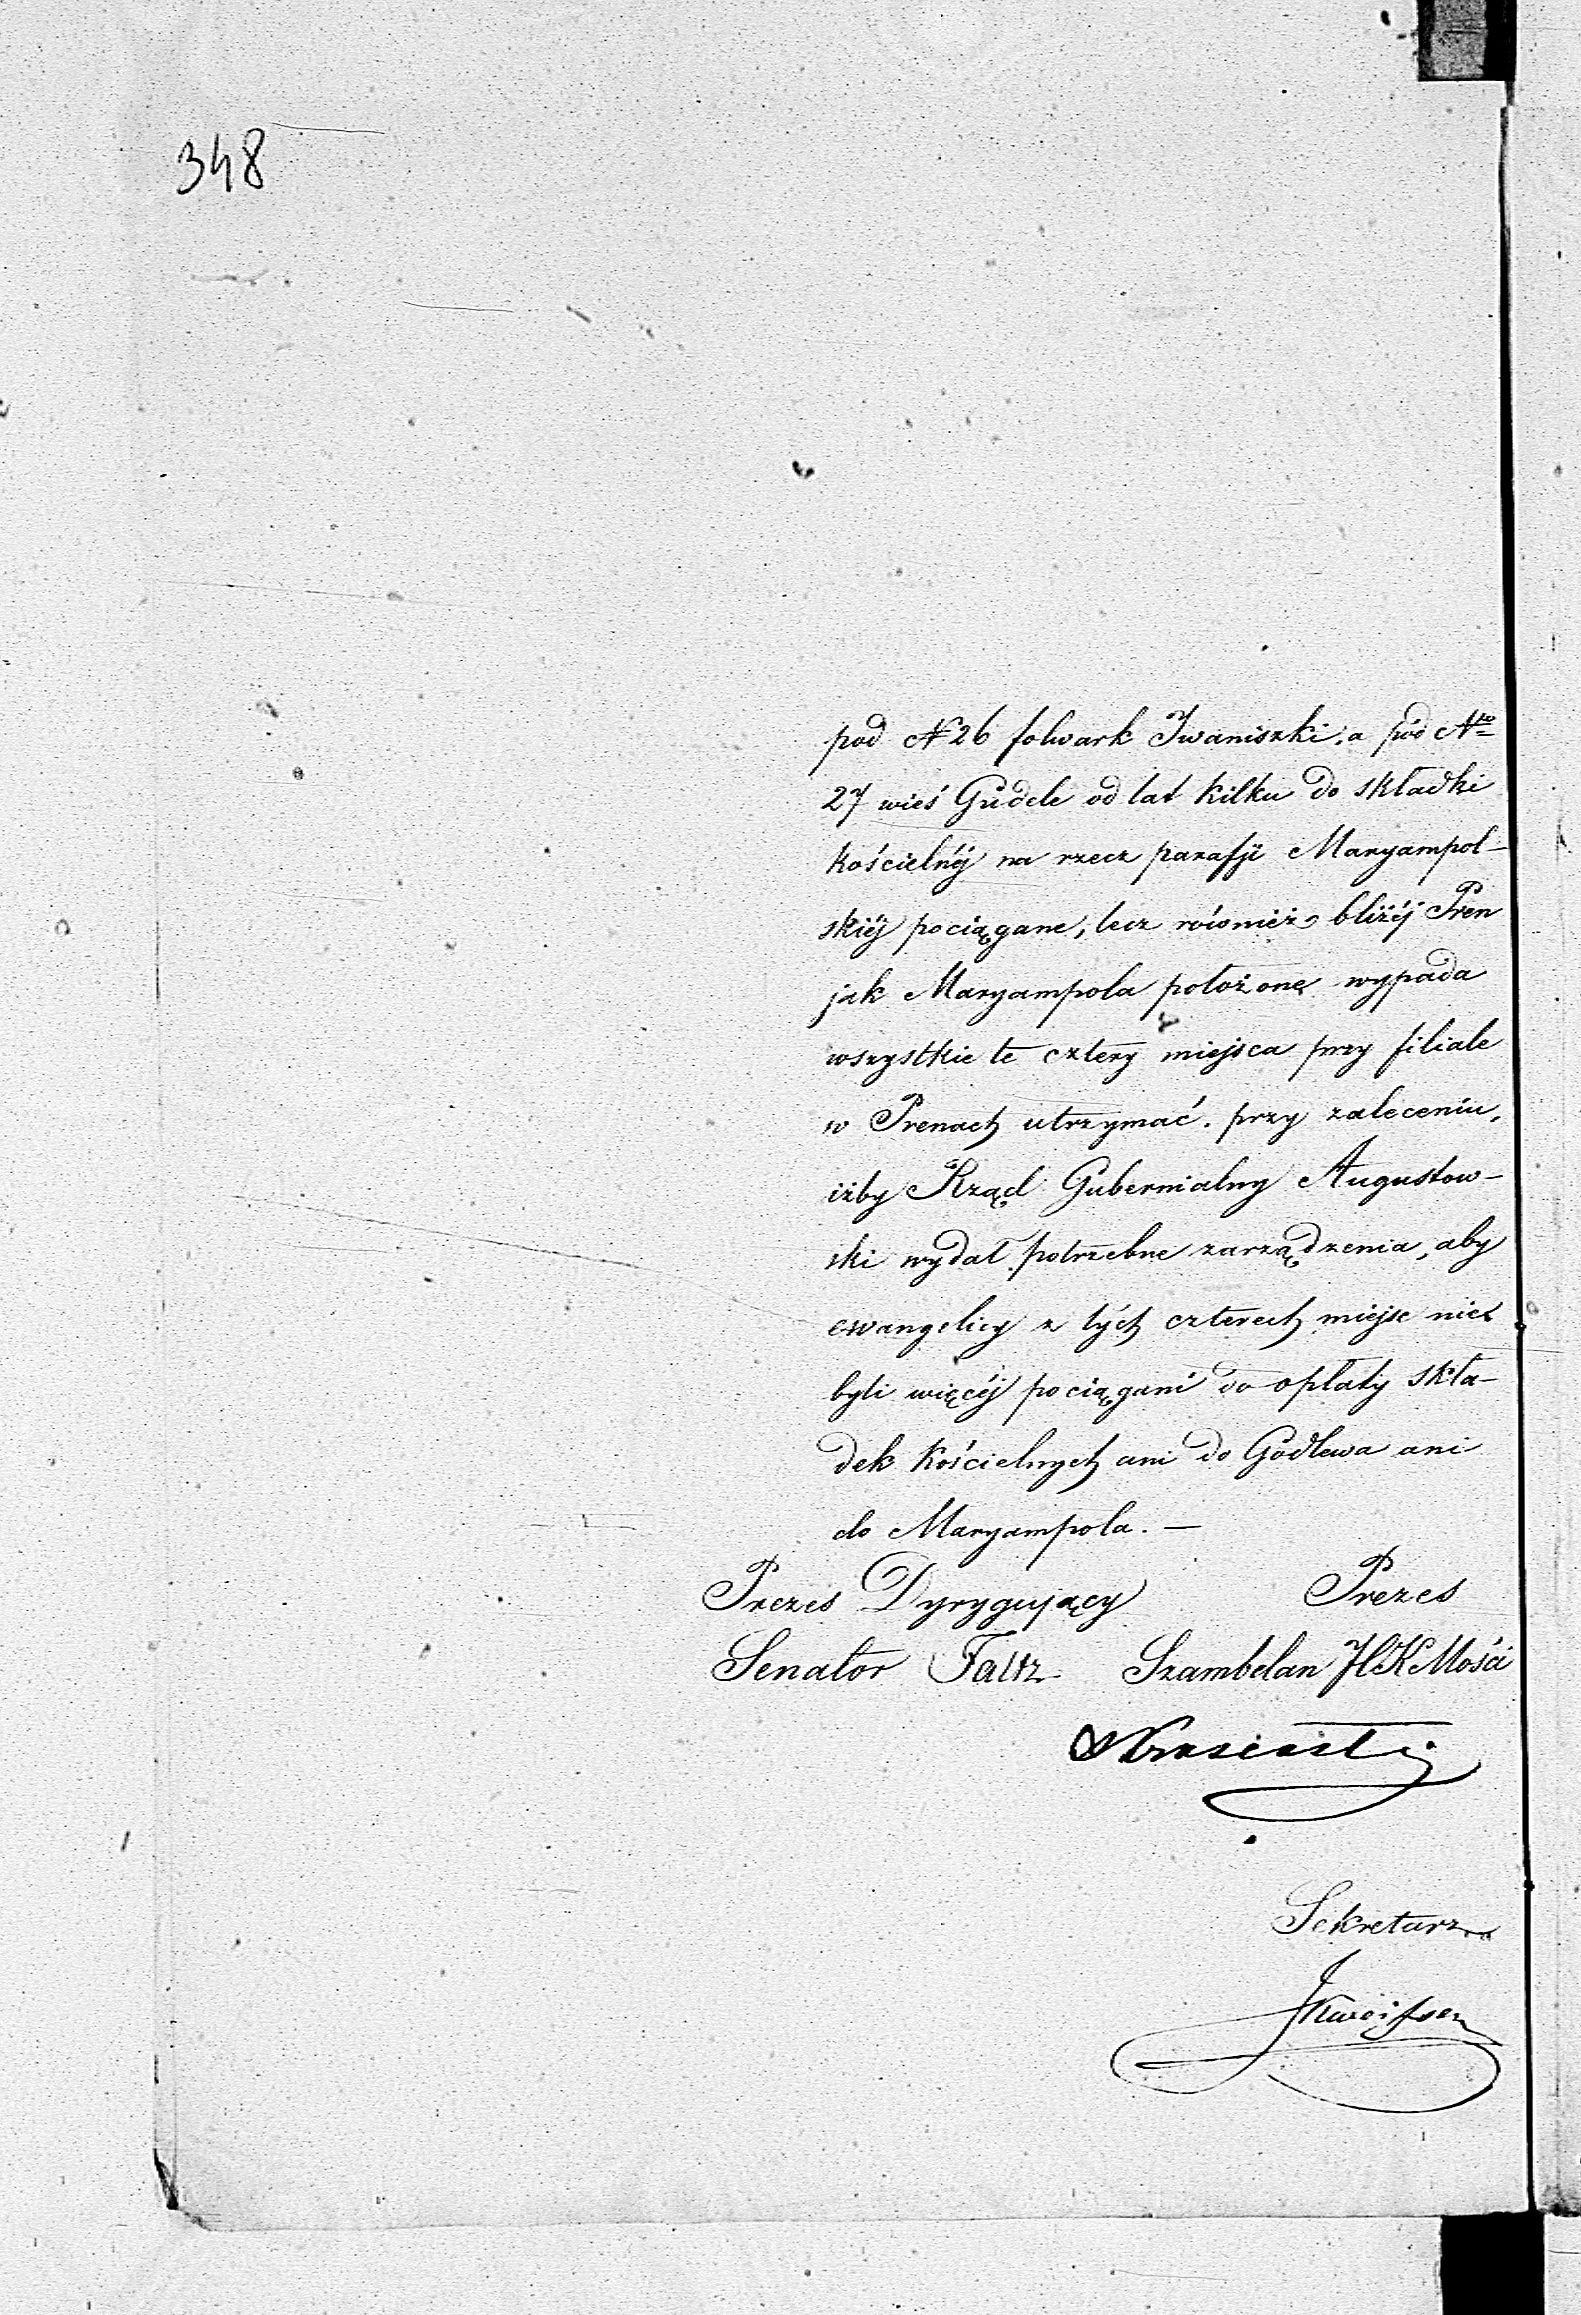 348
pod N 26 folwark Iwaniszki, a pod Nro
27 wieś Gudele od lat kilku do składki
kościelnéj na rzecz parafji Maryampol-
skiéj pociągane, lecz również bliżéj Pren
jak Maryampola położone wypada
wszystkie te cztery miejsca przy filiale
w Prenach utrzymać. przy zaleceniu,
iżby Rząd Gubernialny Augustow-
ski wydał potrzebne zarządzenia, aby
ewangelicy z tých czterech miejsc nie
byli więcéj pociągani do opłaty skła-
dek kościelnych ani do Godlewa ani
do Maryampola. —
Prezes Dyrygujący Prezes
Senator Faltz Szambelan JCKMości
Sekretarz